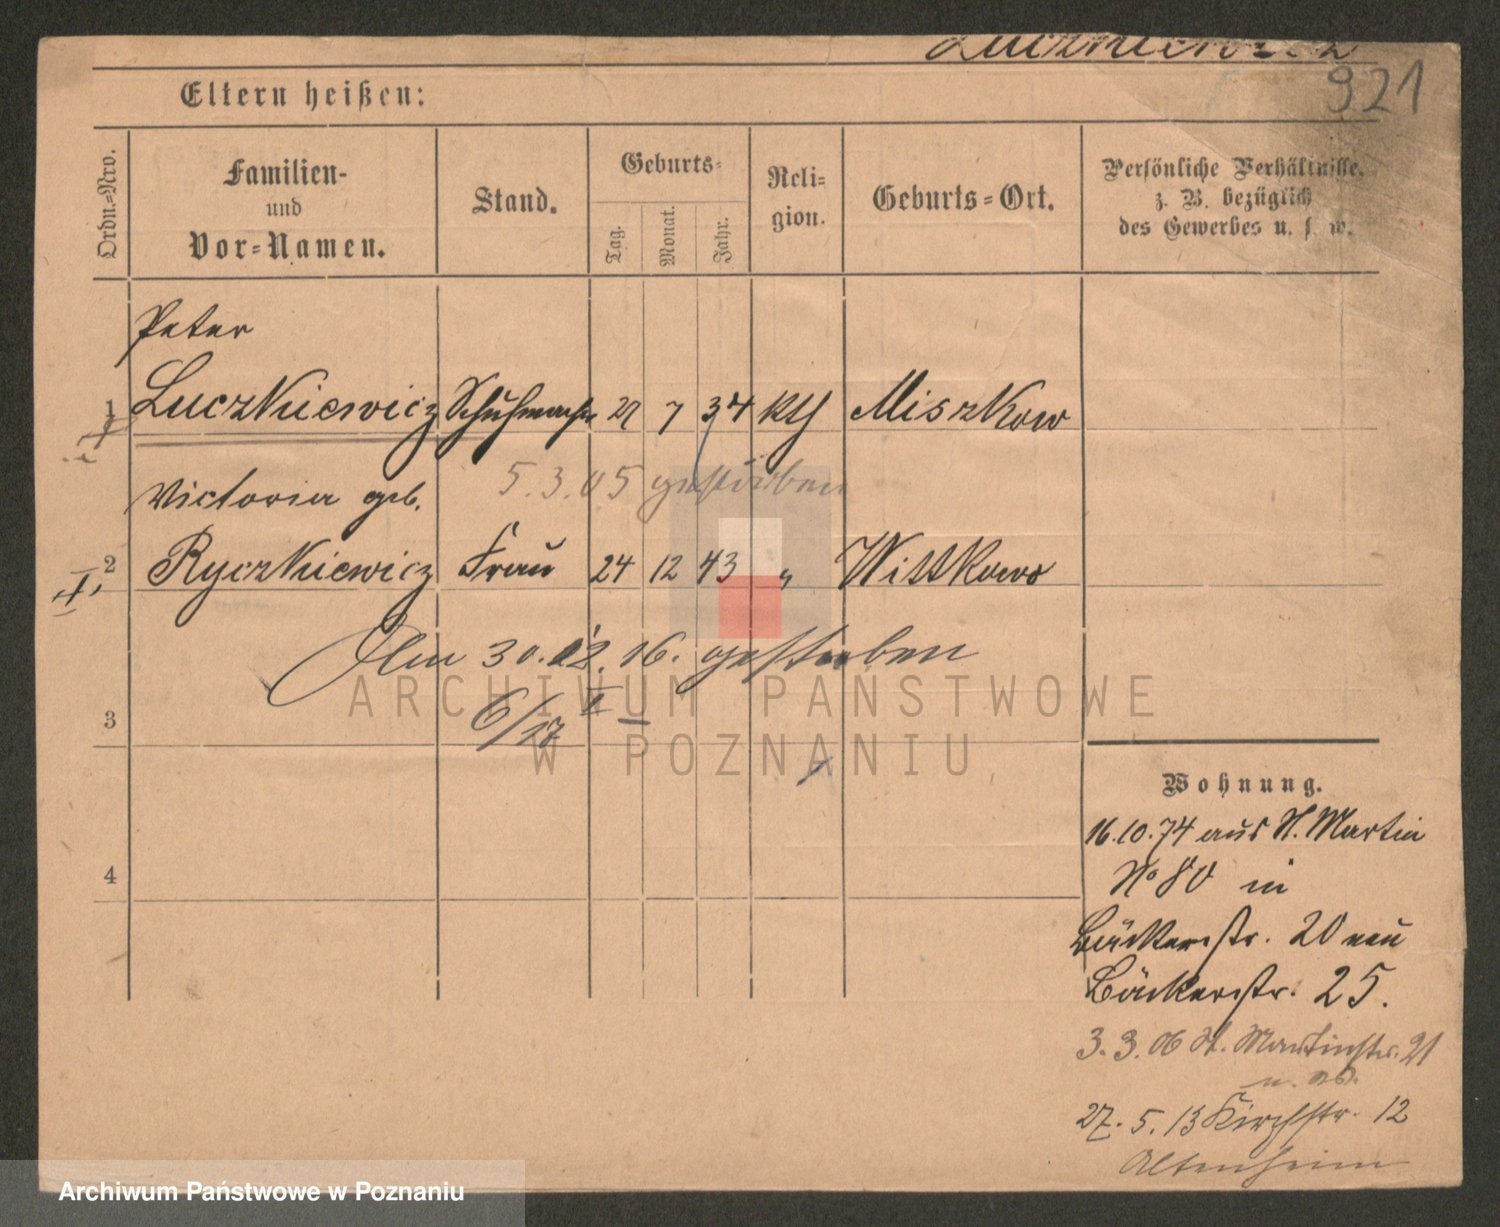 Luczkiewicz
921
Eltern heißen:
Ordn.-Nro.
Familien-
und
Vor-Namen.
Stand.
Geburts-
Tag.
Monat.
Jahr.
Reli-
gion.
Geburts-Ort.
Persönliche Verhältnisse,
z. B. bezüglich
des Gewerbes u. s. w.
Peter
1 Luczkiewicz Schuhmacher 29 7 34 kth Miszkow
5.3.05 gestorben
Victoria geb.
2 Ryczkiewicz Frau 24 12 43 " Wittkowo
Am 30.12.16. gestorben
6/II 17
3
4
Wohnung.
16.10.74 aus St. Martin
No 80 in
Bäckerstr. 20 neu
Bäckerstr. 25.
3.3.06 St. Martinstr. 21
27.5.13 Kirchstr. 12
Altenheim
ARCHIWUM PAŃSTWOWE
W POZNANIU
Archiwum Państwowe w Poznaniu